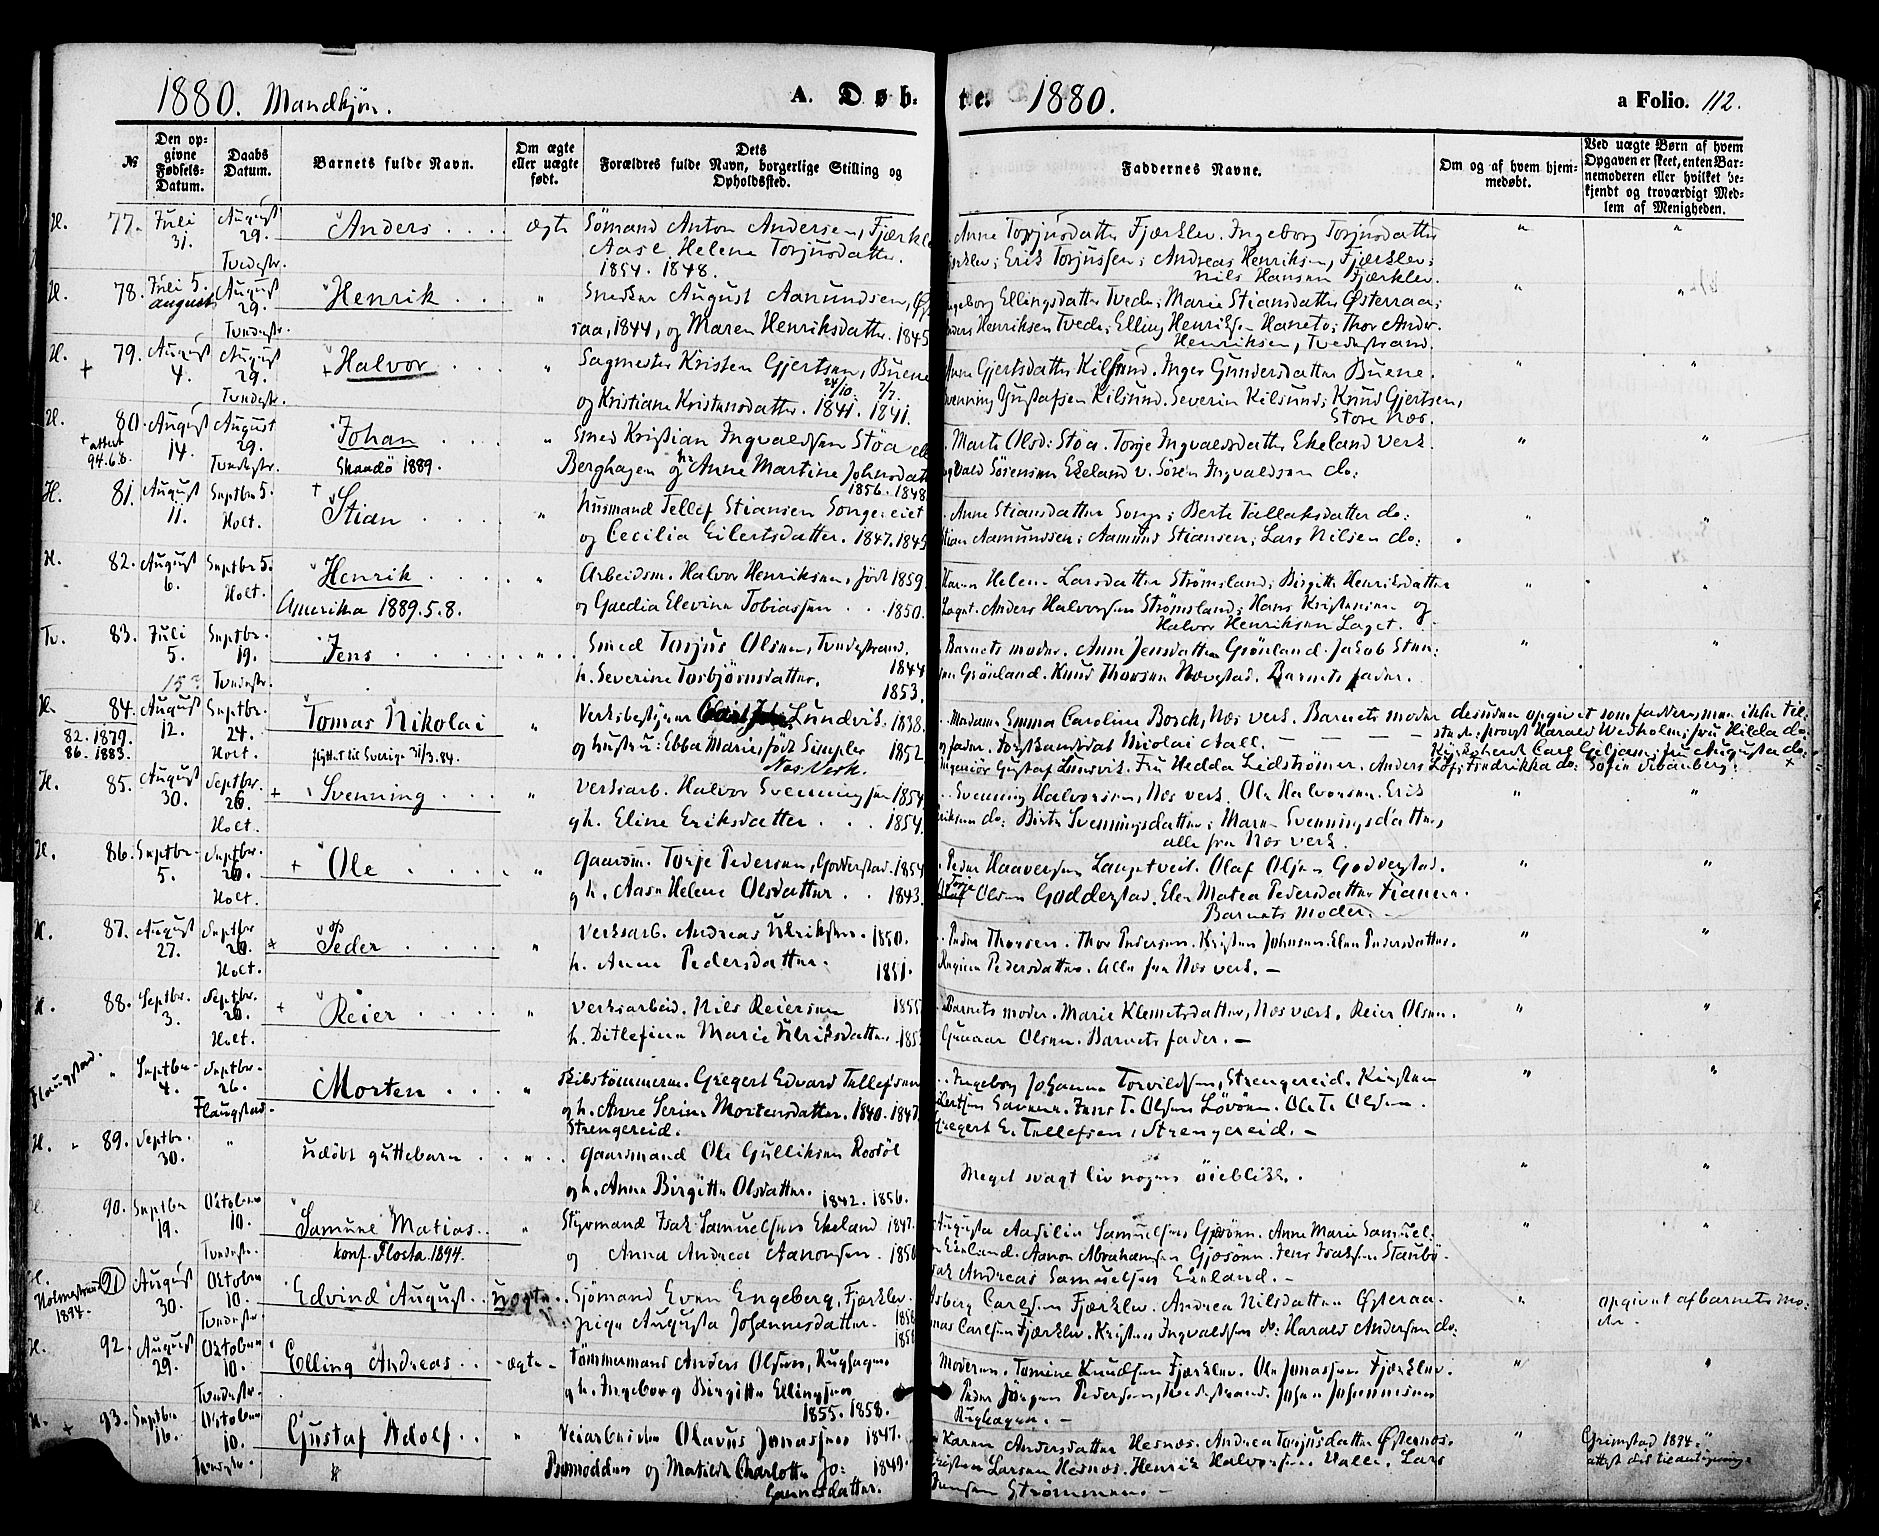 1880. Mandkjøn.
A. Døb-
te. 1880.
a Folio. 112.
№
Den op-
givne
Fødsels-
Datum.
Daabs
Datum.
Barnets fulde Navn.
Om ægte
eller uægte
født.
Dets
Forældres fulde Navn, borgerlige Stilling og
Opholdssted.
Faddernes Navne.
Om og af hvem hjem-
medøbt.
Ved uægte Børn af hvem
Opgaven er skeet, enten Bar-
nemoderen eller hvilket be-
kjendt og troværdigt Med-
lem af Menigheden.
H. 77. Juli 31. August 29. Tvedestr.
Anders ægte
Sømand Anton Andersen, Fjærklev
Aase Helene Torjusdatter.
1854. 1848.
Anne Torjusdatter Fjærklev. Ingeborg Torjusdatter
Fjærklev; Erik Torjussen; Andreas Henriksen, Fjærklev;
Nils Hansen Fjærklev.
H. 78. Juli 5. august August 29. Tvedestr.
Henrik "
Snedker August Aanundsen,
raa, 1844, og Maren Henriksdatter. 1845
Ingeborg Ellingsdatter Tvede; Marie Stiansdatter Østeraa;
Anders Henriksen Tvede; Elling Henriksen Haneto; Thor Ander.
Henriksen, Tvedestrand.
H. + 79. August 4. August 29. Tvedestr.
+ Halvor "
Sagmester Kristen Gjertsen, Buene
24/10. 7/7.
og Kristiane Kristensdatter. 1841. 1841.
Anne Gjertsdatter Kilsund. Inger Gundersdatter Buene.
Svenning Gustafsen Kilsund. Severin Kilsund; Knud Gjertsen,
Store Næs.
H. 80. August 14. August 29. Tvedestr.
+ attest 94.6.6.
Johan "
Skaadø 1889.
Smed Kristian Ingvaldsen Støa
Berghagen og Anne Martine Johnsdatter
1856. 1848.
Marte Olsd: Støa. Torje Ingvaldsdatter Ekeland verk
Ingvald Sørensen Ekeland v. Søren Ingvaldsen do:
H. 81. August 11. Septbr 5. Holt.
+ Stian "
husmand Tellef Stiansen Songe eiet
og Cecilia Eilertsdatter. 1847. 1843
Anne Stiansdatter Songe; Berte Tallaksdatter do:
Stian Aamundsen; Aamund Stiansen; Lars Nilsen do:
H. 82. August 6. Septbr 5. Holt.
Henrik "
Amerika 1889.5.8.
Arbeidsm. Halvor Henriksen, født 1859.
og Gaedia Elevine Tobiassen 1850.
Karen Helene Larsdatter Strømsland; Birgitte Henriksdatter
Laget. Anders Halvorsen Strømsland; Hans Kristensen og
Halvor Henriksen Laget.
Tv. 83. Juli 5. 15? Septbr. 19. Tvedestr.
Jens "
Smed Torjus Olsen, Tvedestrand, 1844
h. Severine Torbjørnsdatter. 1853.
Barnets moder. Anne Jensdatter Grønland. Jakob Steen:
sen Grønland. Knud Thorsen Nævestad. Barnets fader.
H. 84. August 12. Septbr. 24. Holt.
82. 1879.
86. 1883.
Tomas Nikolai "
flyttet til Sverige 21/3.84.
Verksbestyrer Lundvik. 1838.
og hustru: Ebba Marie født Simpler 1852
Næs Verk.
Madame Emma Caroline Bosch, Næs verk. Barnets moder desuden opgivet som faddere men ikke til-
og fader. Forstkandidat Nicolai Aall. stede: provst Harald Wedholm; fru Hilda do:
Kyrkoherde Carl Giljam; fru Augusta do:
Ingeniør Gustaf Lundvik. Fru Hedda Lidströmer. Anders Löf; Fredrikka do: Sofie
H. 85. August 30. Septbr. 26. Holt.
+ Svenning "
Verksarb. Halvor Svenningsen 1854
gh. Eline Eriksdatter 1854.
Svenning Halvorsen, Næs verk. Ole Halvorsen. Erik
Eriksen do: Birte Svenningsdatter; Maren Svenningsdatter,
alle fra Næs verk.
H. 86. Septbr. 5. Septbr. 26. Holt.
+ Ole "
gaardm. Torje Pedersen, Goderstad. 1854
g h. Aase Helene Olsdatter 1843.
Peder Haaversen Langtveit. Olaf Olsen Godderstad.
Torje Olsen Godderstad. Elen Matea Pedersdatter Fianen.
Barnets Moder.
H. 87. August 27. Septbr 26. Holt.
+ Peder "
Verksarb. Andreas Ulriksen. 1850.
h. Anne Pedersdatter. 1851.
Peder Thorsen. Thor Pedersen. Kristen Johnsen. Elen Pedersdatter.
Regine Pedersdatter. Alle fra Næs verk. —
H. 88. Septbr. 3. Septbr. 26. Holt.
+ Reier "
Verksarbeid. Nils Reiersen 1855
h. Ditlefine Marie Ulriksdatter, 1853
Barnets moder. Marie Klemetsdatter, Næs værk. Reier Olsen.
Gunnar Olsen. Barnets fader. —
Flaugstad. " Septbr. 4. Septbr. 26. Flaugstad.
Morten "
Skibstømmerm. Gregert Edvard Tellefsen
gh. Anne Serine Mortensdatter. 1840. 1847
Strengereid.
Ingeborg Johanne Torvildsen, Strengereid. Kirsten
Jens T. Olsen Løvøen. Ole T. Olsen.
Gregert E. Tellefsen, Strengereid. —
H. 89. Septbr. 30. "
udøbt guttebarn "
gaardmand Ole Gulliksen Rosøl
gh. Anne Birgitte Olsdatter. 1842. 1856.
Meget svagt liv nogen øieblikk.
90. Septbr 19. Oktober 10. Tvedestr.
Samuel Matias "
konf. Flosta 1894.
Styrmand Isak Samuelsen Ekeland 1847.
og Anna Andrea Aanonsen. 1850
Augusta Aasilie Samuelsen Gjøsøen. Anne Marie Samuel-
sen Ekeland. Aanon Abrahamsen Gjøsøen. Jens Isaksen Staubø.
Isak Andreas Samuelsen Ekeland. —
H. Holmestrand 1894. 91 August 30. Oktober 10. Tvedestr.
Edvind August uægte
Sjømand Even Engeberg, Fjærklev
pige Augusta Johannesdatter. 1856
1858
Asberg Carlsen Fjærklev. Andrea Nilsdatter Østeraa.
Carlsen Fjærklev. Kristen Ingvaldsen do: Harald Andersen do:
opgivet af barnets mo:
der.
H. 92. August 29. Oktober 10. Tvedestr.
Elling Andreas ægte
Tømmermand Anders Olsen, Rughagen
gh. Ingeborg Birgitte Ellingsen
1855. 1858.
Moderen. Tomine Knudsen Fjærklev. Ole Jonassen Fjærklev.
Peder Jørgen Pedersen, Tvedestrand. Johan Johannesen
Rughagen. —
H. + 93. Septbr 16. Oktober 10. Tvedestr.
Gustaf Adolf "
Veiarbeider Olavus Jonassen 1847.
Bromodden og Matilde Charlotte Jo: 1849.
hannesdatter.
Karen Andersdatter Hesnæs. Andrea Torjusdatter Østernæs.
Larsen Hesnæs. Henrik Halvorsen. Lars
Jensen Strømmen. —
Grimstad 1894.
attest